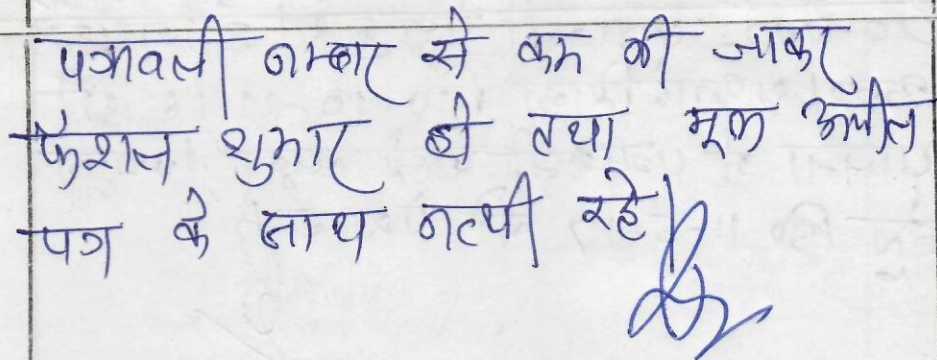 पत्रावली नम्बर से कम की जाकर
फैशल शुमार हो तथा मूल अपील
पत्र के साथ नत्थी रहे